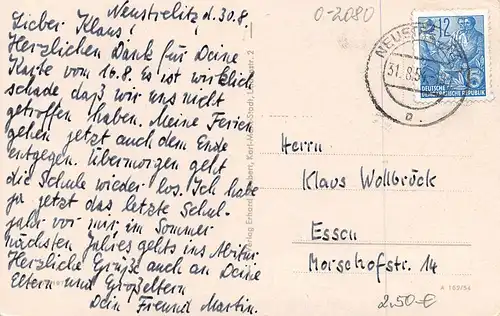 Neustrelitz d. 30.8.
Lieber Klaus!
Herzlichen Dank für Deine
Karte vom 16.8. Es ist wirklich
schade, daß wir uns nicht
getroffen haben. Meine Ferien
gehen jetzt auch dem Ende
entgegen. Übermorgen geht
die Schule wieder los. Ich habe
ja jetzt das letzte Schul-
jahr vor mir, im Sommer
nächsten Jahres gehts ins Abitur.
Herzliche Grüße auch an Deine
Eltern und Großeltern
Dein Freund Martin.
Verlag Erhard Neubert, Karl-Marx-Stadt
0-2080
NEUSTRELITZ
31.8.5
a
12
DEUTSCHE
DEMOKRATISCHE REPUBLIK
Herrn
Klaus Wollbrück
Essen
Morsehofstr. 14
A 162/54
2.50 €